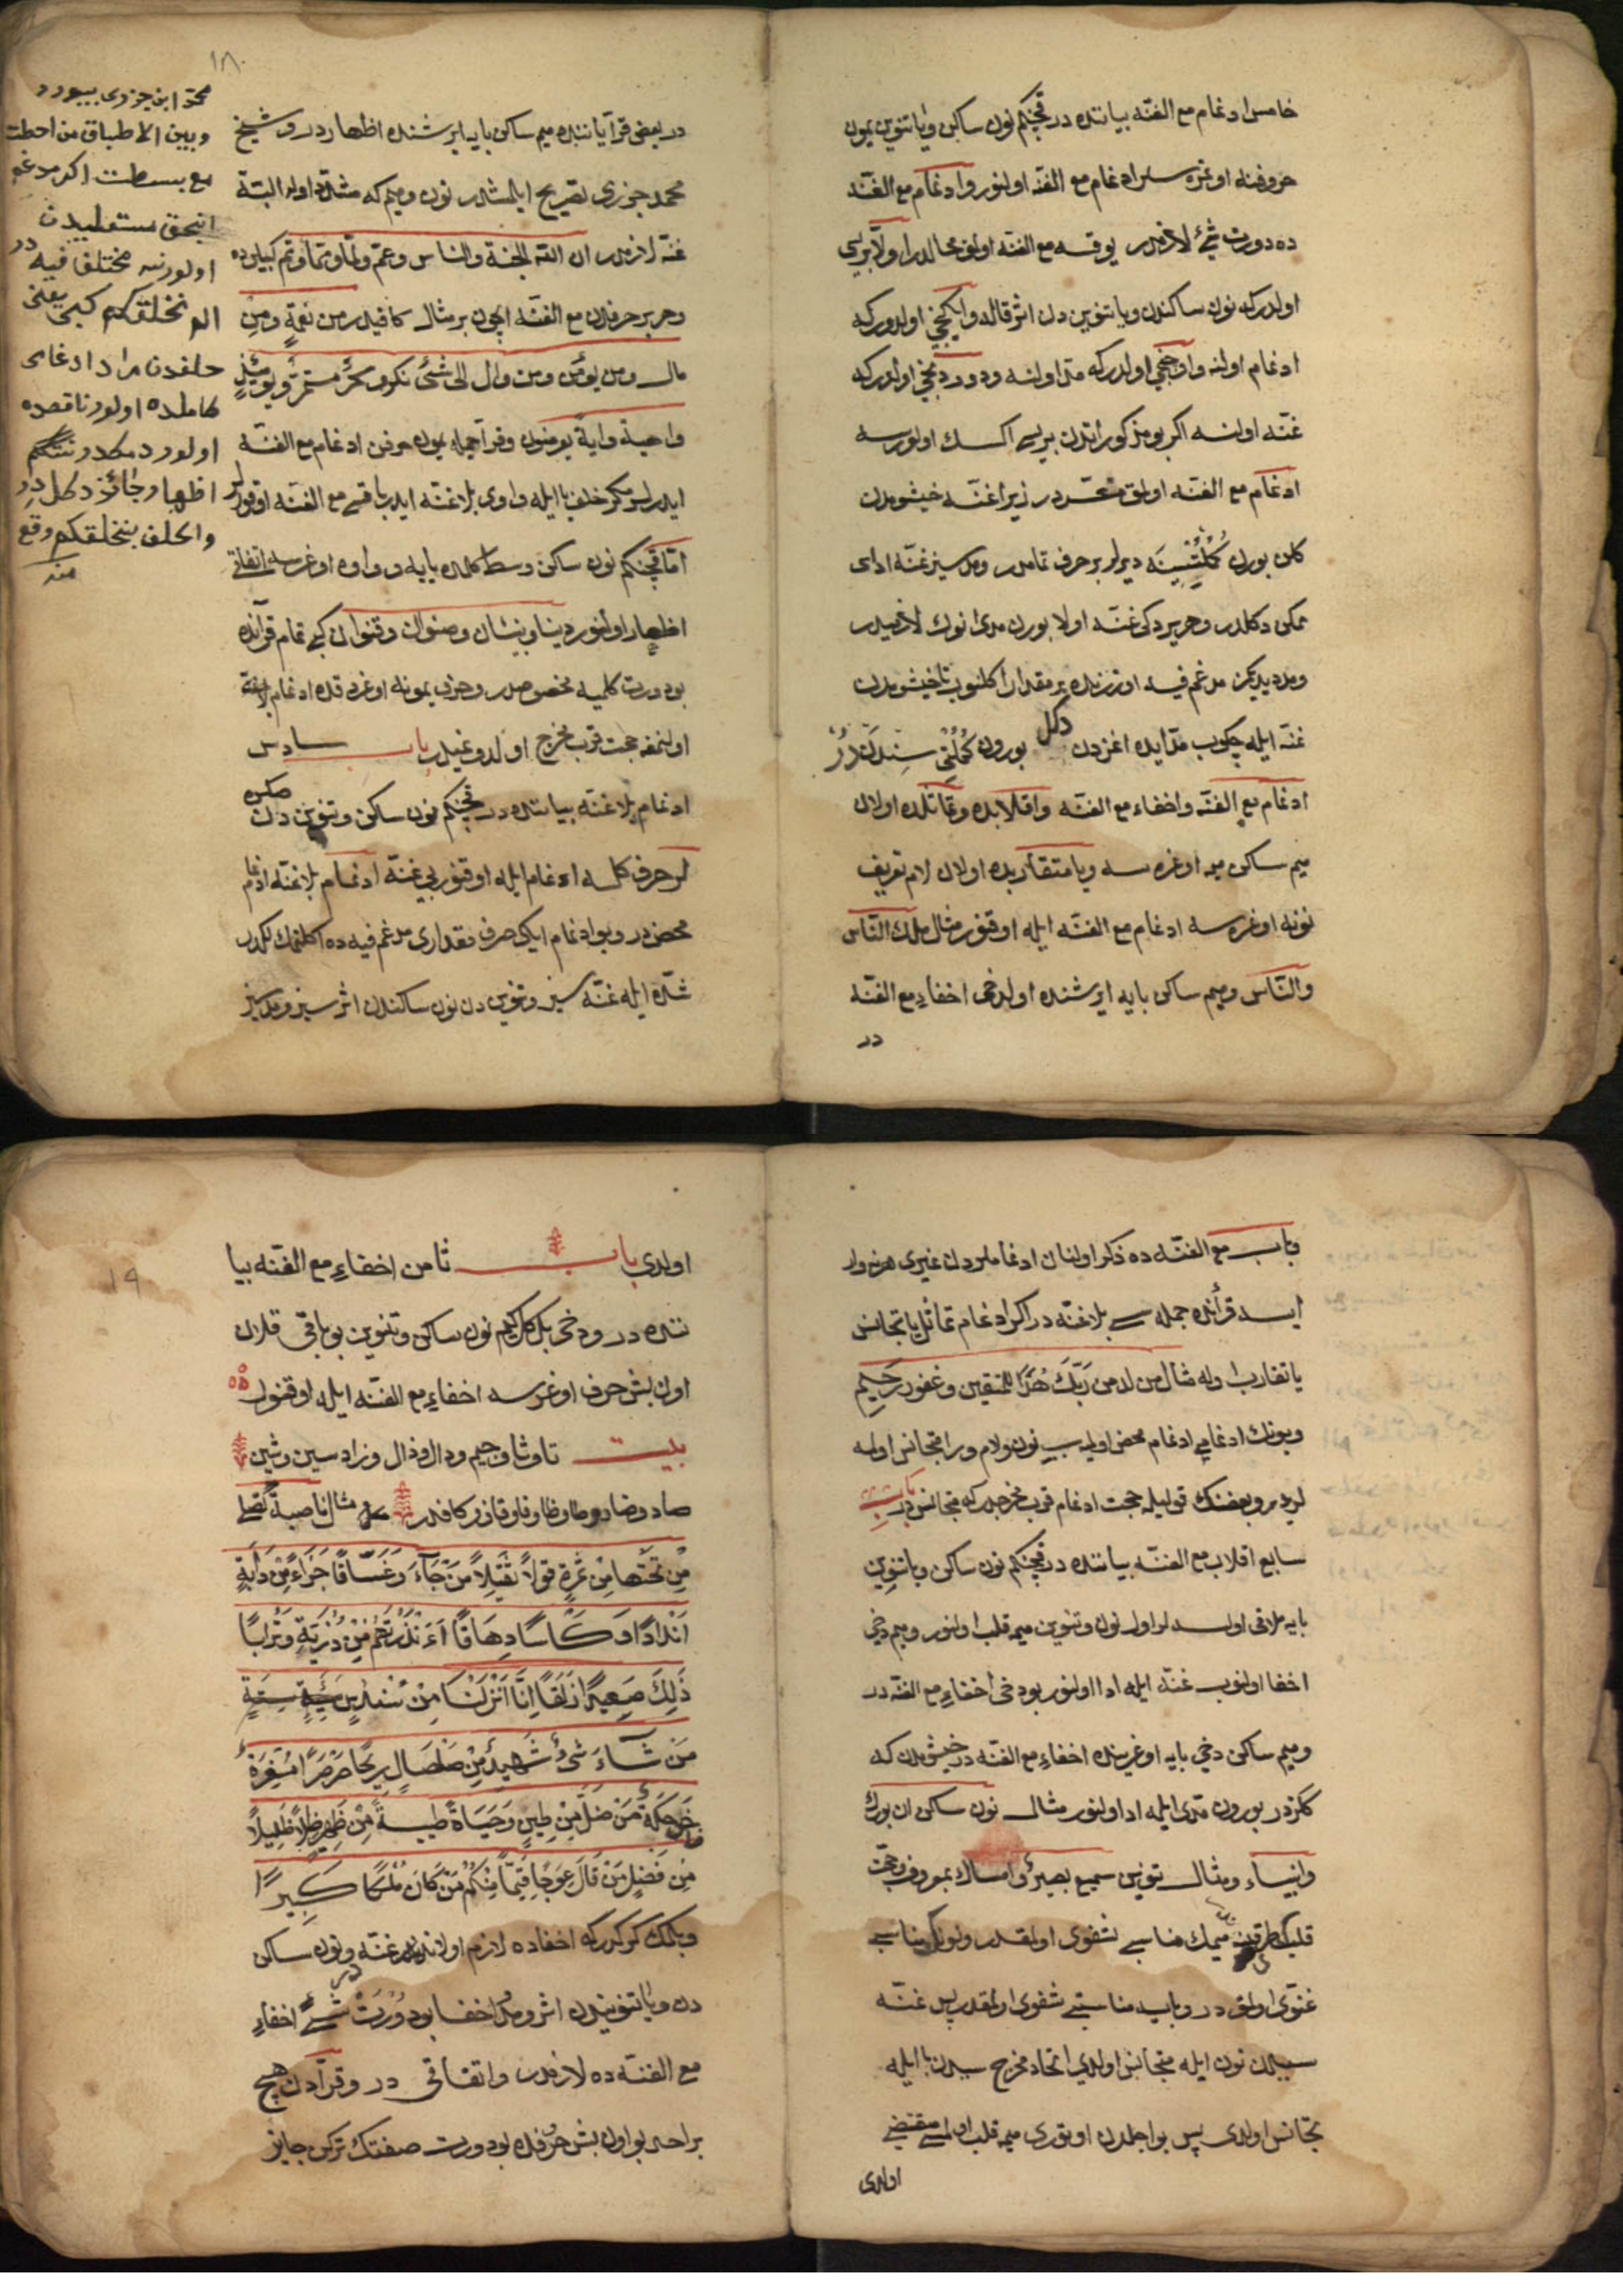 خامس ادغام مع الغنّه بیاننده در قچنکم نون ساکن ویا تنوین یمون
حروفنه اوغره سلر ادغام مع الغنّه اولنور وادغام مع الغنّه
ده دورت شیٔ لازمدر یوقسه مع الغنّه اولمق محالدر اولا بریسی
اولدرکه نون ساکندن ویا تنوین دن اثر قاله وایکنجی اولدورکه
ادغام اولنه واوچنجی اولدرکه مدّ اولنه ودوردنجی اولدرکه
غنّه اولنه اکر بو مذکوراتدن بریسی اکسک اولورسه
ادغام مع الغنّه اولمق متعسّردر زیرا غنّه خیشومدن
کلن بورن دیرلر بر حرف تمامدر ومدسیز غنّه ادای
ممکن دکلدر وهر یرده کی غنّه اولا بورن مدی انوک لازمیدر
ومد دیدیکمز مدغم فیه اوزرنده بر مقدار اکلنوب تا خیشومدن
غنّه ایله چکوب مدّ ایده اغزدن دکل بورون
ادغام مع الغنّه واخفاء مع الغنّه واقلابده وتماثلده اولان
میم ساکن میمه اوغره سه ویا متقاربده اولان لام تعریف
نونه اوغره سه ادغام مع الغنّه ایله اوقنور مثال ملك النّاس
والنّاس ومیم ساکن بایه ایرشنده اولدخی اخفاء مع الغنّه
در
۱۸
در بعض قرآیاتنده میم ساکن بایه ایرشنده اظهاردر و شیخ
محمد جزری تصریح ایلمشدر نون ومیم که مشدّد اوله البتّه
غنّه لازمدر ان الله الجنّة والناس وعمّ ولمّا وممّا وثمّ کبیلرده
وهر بر حرفدن مع الغنّه ایچون بر مثال کافیدر من نعمةٍ ومن
مال ومن یومن ومن وال الی شئ نکر وسحرٌ مستمرٌّ ویومئذٍ
واهیة وایةٌ یومنون وقرآ جمله یمون حرفن ادغام مع الغنّه
ایدرلر مکر خلف یا ایله واوی بلا غنّه ایدر باقسی مع الغنّه اوقورلر
امّا قچنکم نون ساکن وسط کلمه ده یایه و واوه اوغرسه اتفاقی
اظهار اولنور دنیا وبنیان وصنوان وقنوان کبی تمام قرآنده
بو دورت کلمیه مخصوصدر وحرف یمونه اوغردقده ادغام
اولنمغه حجت قرب مخرج اولدوغیدر باب سادس
ادغام بلا غنّه بیاننده در قچنکم نون ساکن وتنوین دن صکره
لر حرف کلسه ادغام ایله اوقنور بی غنّه ادغام بلا غنّه ادغام
محض در وبو ادغام ایکی حرف مقداری مدغم فیه ده اکلنمك کرکدر
شدّه ایله غنّه سیز وتنوین دن نون ساکندن اثر سیز ومد سیز
محمّد ابن جزری بیورر
وبین الاطباق من احطت
مع بسطت اکر مدغم
انجق مستعلیدن
اولورسه مختلف فیه در
الم نخلقکم کبی یعنی
خلفدن مراد ادغامی
کاملده اولور ناقصده
اولور دمکدر
اظهار وجائز دکل در
والخلف بنخلقکم وقع
منه
وباب مع الغنّه ده ذکر اولنان ادغاملردن غیری هر نه وار
ایسه قرآنده جمله سی بلا غنّه در اکر ادغام تماثل یا تجانس
یا تقارب اوله مثال من لدن من رَبّك هُدًا للمتقین وغفور رَحِیم
وبونك ادغامی ادغام محض اولمه سی نون ولام ورا متجانس اوله
لردر وبعضنك قولیله حجت ادغام قرب مخرجدرکه متجانس در باب
سابع اقلاب مع الغنّه بیاننده در قچنکم نون ساکن ویا تنوین
بایه ملاقی اولسه لر اول نون وتنوین میمه قلب اولنور ومیم دخی
اخفا اولنوب غنّه ایله ادا اولنور بودخی اخفاء مع الغنّه در
ومیم ساکن دخی بایه اوغرینده اخفاء مع الغنّه در خیشومدن که
کلزدر بورون مدی ایله ادا اولنور مثال نون ساکن ان بورك
وانبیاء ومثال تنوین سمیع بصیرٌ وامساك بمعروف وحجت
قلبك میمك مناسبی شفوی اولمقدر ونونك مناسبی
غنّوی اولمق در وبایه مناسبتی شفوی اولمقدر پس غنّه
سببیدن نون ایله متجانس اولدی اتحاد مخرج سببدن با ایله
تجانس اولدی پس بو اجلدن اوتوری میمه قلب اولمسی مقتضی
اولدی
۱۹
اولدی باب ثامن اخفاء مع الغنّه بیا
ننده در ودخی بلکل کیم نون ساکن وتنوین بو باقی قلان
اون بش حرف اوغرسه اخفاء مع الغنّه ایله اوقنور
بیت تا وثا وجیم ودال وذال وزا وسین وشین
صاد وضاد وطا وظا وفا وقاف وکافدر مثال ناصبةٌ تصلی
مِن تَحْتِها مِنْ ثَمَرةٍ قولاً ثَقیلاً مَنْ جَآءَ وَغَسَّاقًا جَزاءً مِنْ دَابَةٍ
اَنْدَادًا وَكَأْسًا دِهَاقًا ءَاَنْذَرْتَهُمْ مِنْ ذُرّیَةِ وَتُرَابًا
ذَلِكَ صَعِیدًا زَلَقًا اِنَّا اَنْزَلْنَا مِنْ سُندسٍ سِتَةٍ
مَنْ شَآءَ شَیءٌ شَهیدٌ مِنْ صَلْصَالٍ رِیحًا صَرْصَرًا
مَنْ ضَلَّ مِنْ طِینٍ وَحَیَاةً طیبةً مِنْ ظَهیر ظِلاًّ ظَلِیلاً
مِنْ فَضْلٍ مَنْ قَالَ عِوَجًا قَیِّمًا مِنْکُمْ مَنْ كَانَ مُلْكًا كَبِیرًا
وبلمك کرکدرکه اخفاده لازم اولاندر غنّه ونون ساکن
دن ویا تنویندن اثر ومد اخفا بو دُورت شیٔ در اخفاءِ
مع الغنّه ده لازمدر واتفاقی در وقرآدن هیچ
بر احد بو اون بش حرفده بو دورت صفتك ترکن جایز